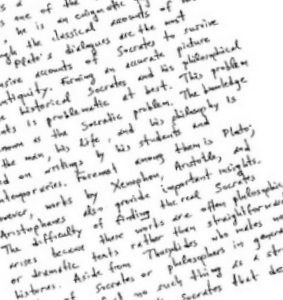 s a one of the
he is an enigmatic
gh the classical accounts of
Plato's dialogues are the most
sive accounts of Socrates to survive
antiquity. Forming an accurate picture
historical Socrates and his philosophical
nts is problematic at best. This problem
nown as the Socratic problem. The knowledge
the man, his life, and his philosophy is
d on writings by his students and
ntemporaries. Foremost among them is Plato;
owever, works by Xenophon, Aristotle, and
Aristophanes also provide important insights.
The difficulty of finding the real Socrates
arises because these works are often philosophic
or dramatic texts rather than straightforward
histories. Aside from Thucydides who makes no
of Socrates or philosophers in general
no such thing as a stra
Socrates that de